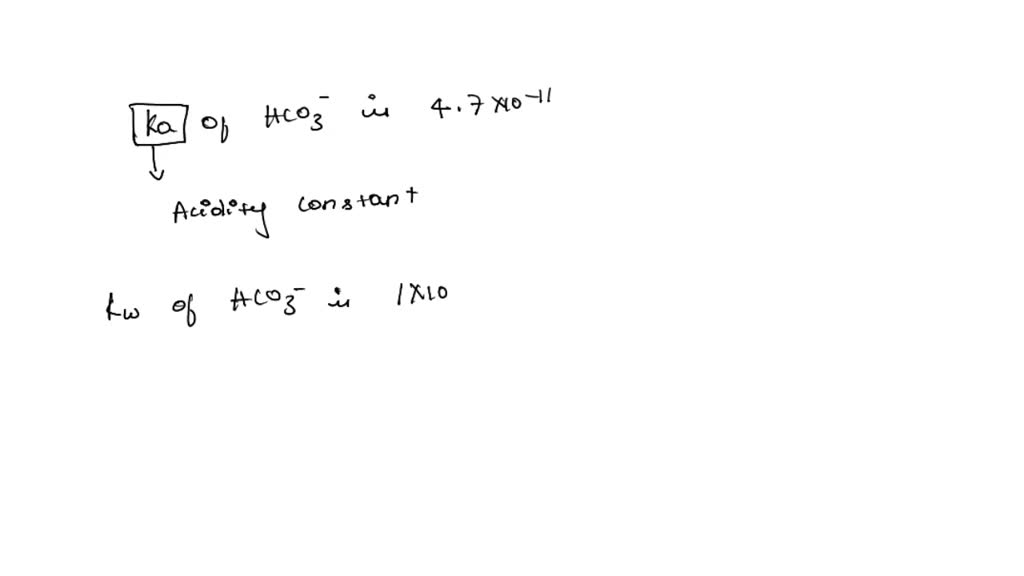 Ka of HCO3⁻ is 4.7×10⁻¹¹
Acidity constant
Kw of HCO3⁻ is 1×10